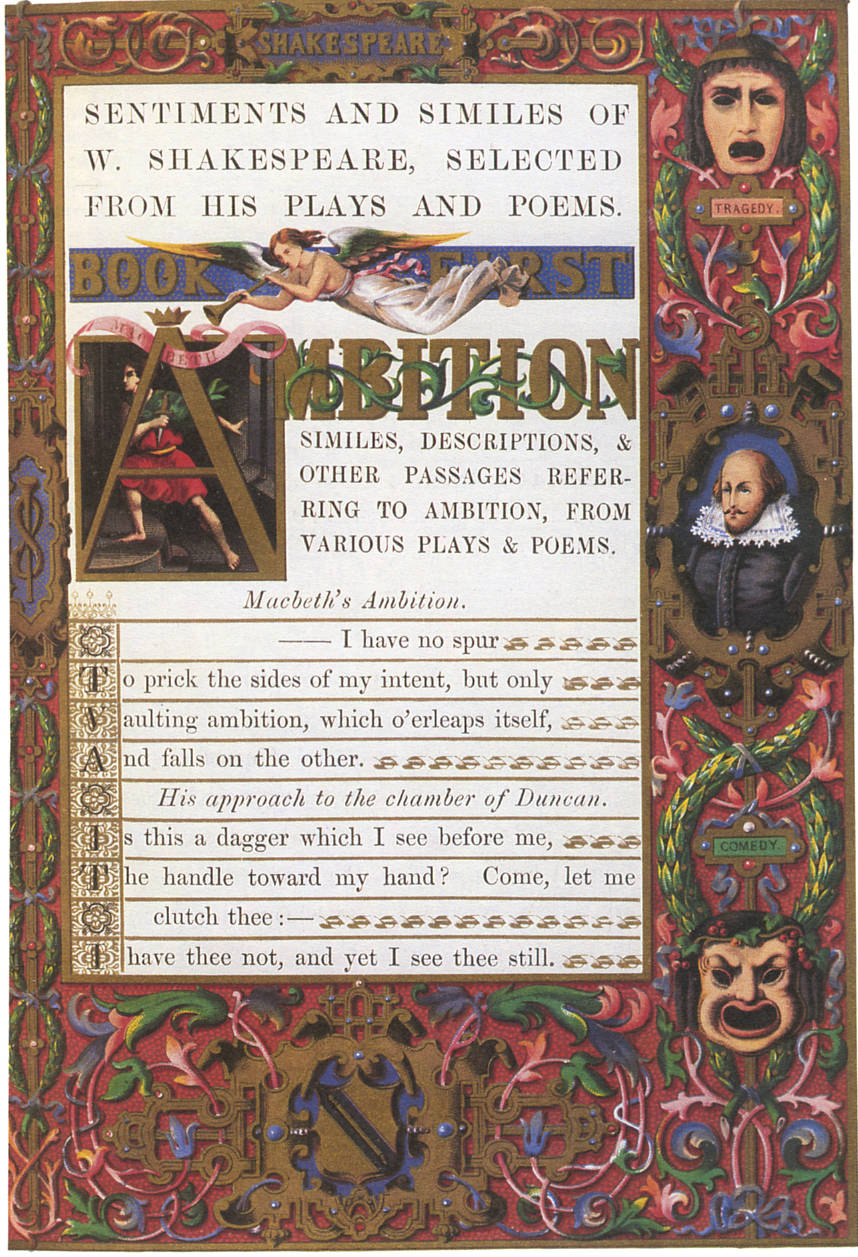 SHAKESPEARE
SENTIMENTS AND SIMILES OF
W. SHAKESPEARE, SELECTED
FROM HIS PLAYS AND POEMS.
BOOK FIRST
MACBETH
AMBITION
SIMILES, DESCRIPTIONS, &
OTHER PASSAGES REFER-
RING TO AMBITION, FROM
VARIOUS PLAYS & POEMS.
Macbeth's Ambition.
—— I have no spur
To prick the sides of my intent, but only
Vaulting ambition, which o'erleaps itself,
And falls on the other.
His approach to the chamber of Duncan.
Is this a dagger which I see before me,
The handle toward my hand? Come, let me
clutch thee :—
I have thee not, and yet I see thee still.
TRAGEDY.
COMEDY.